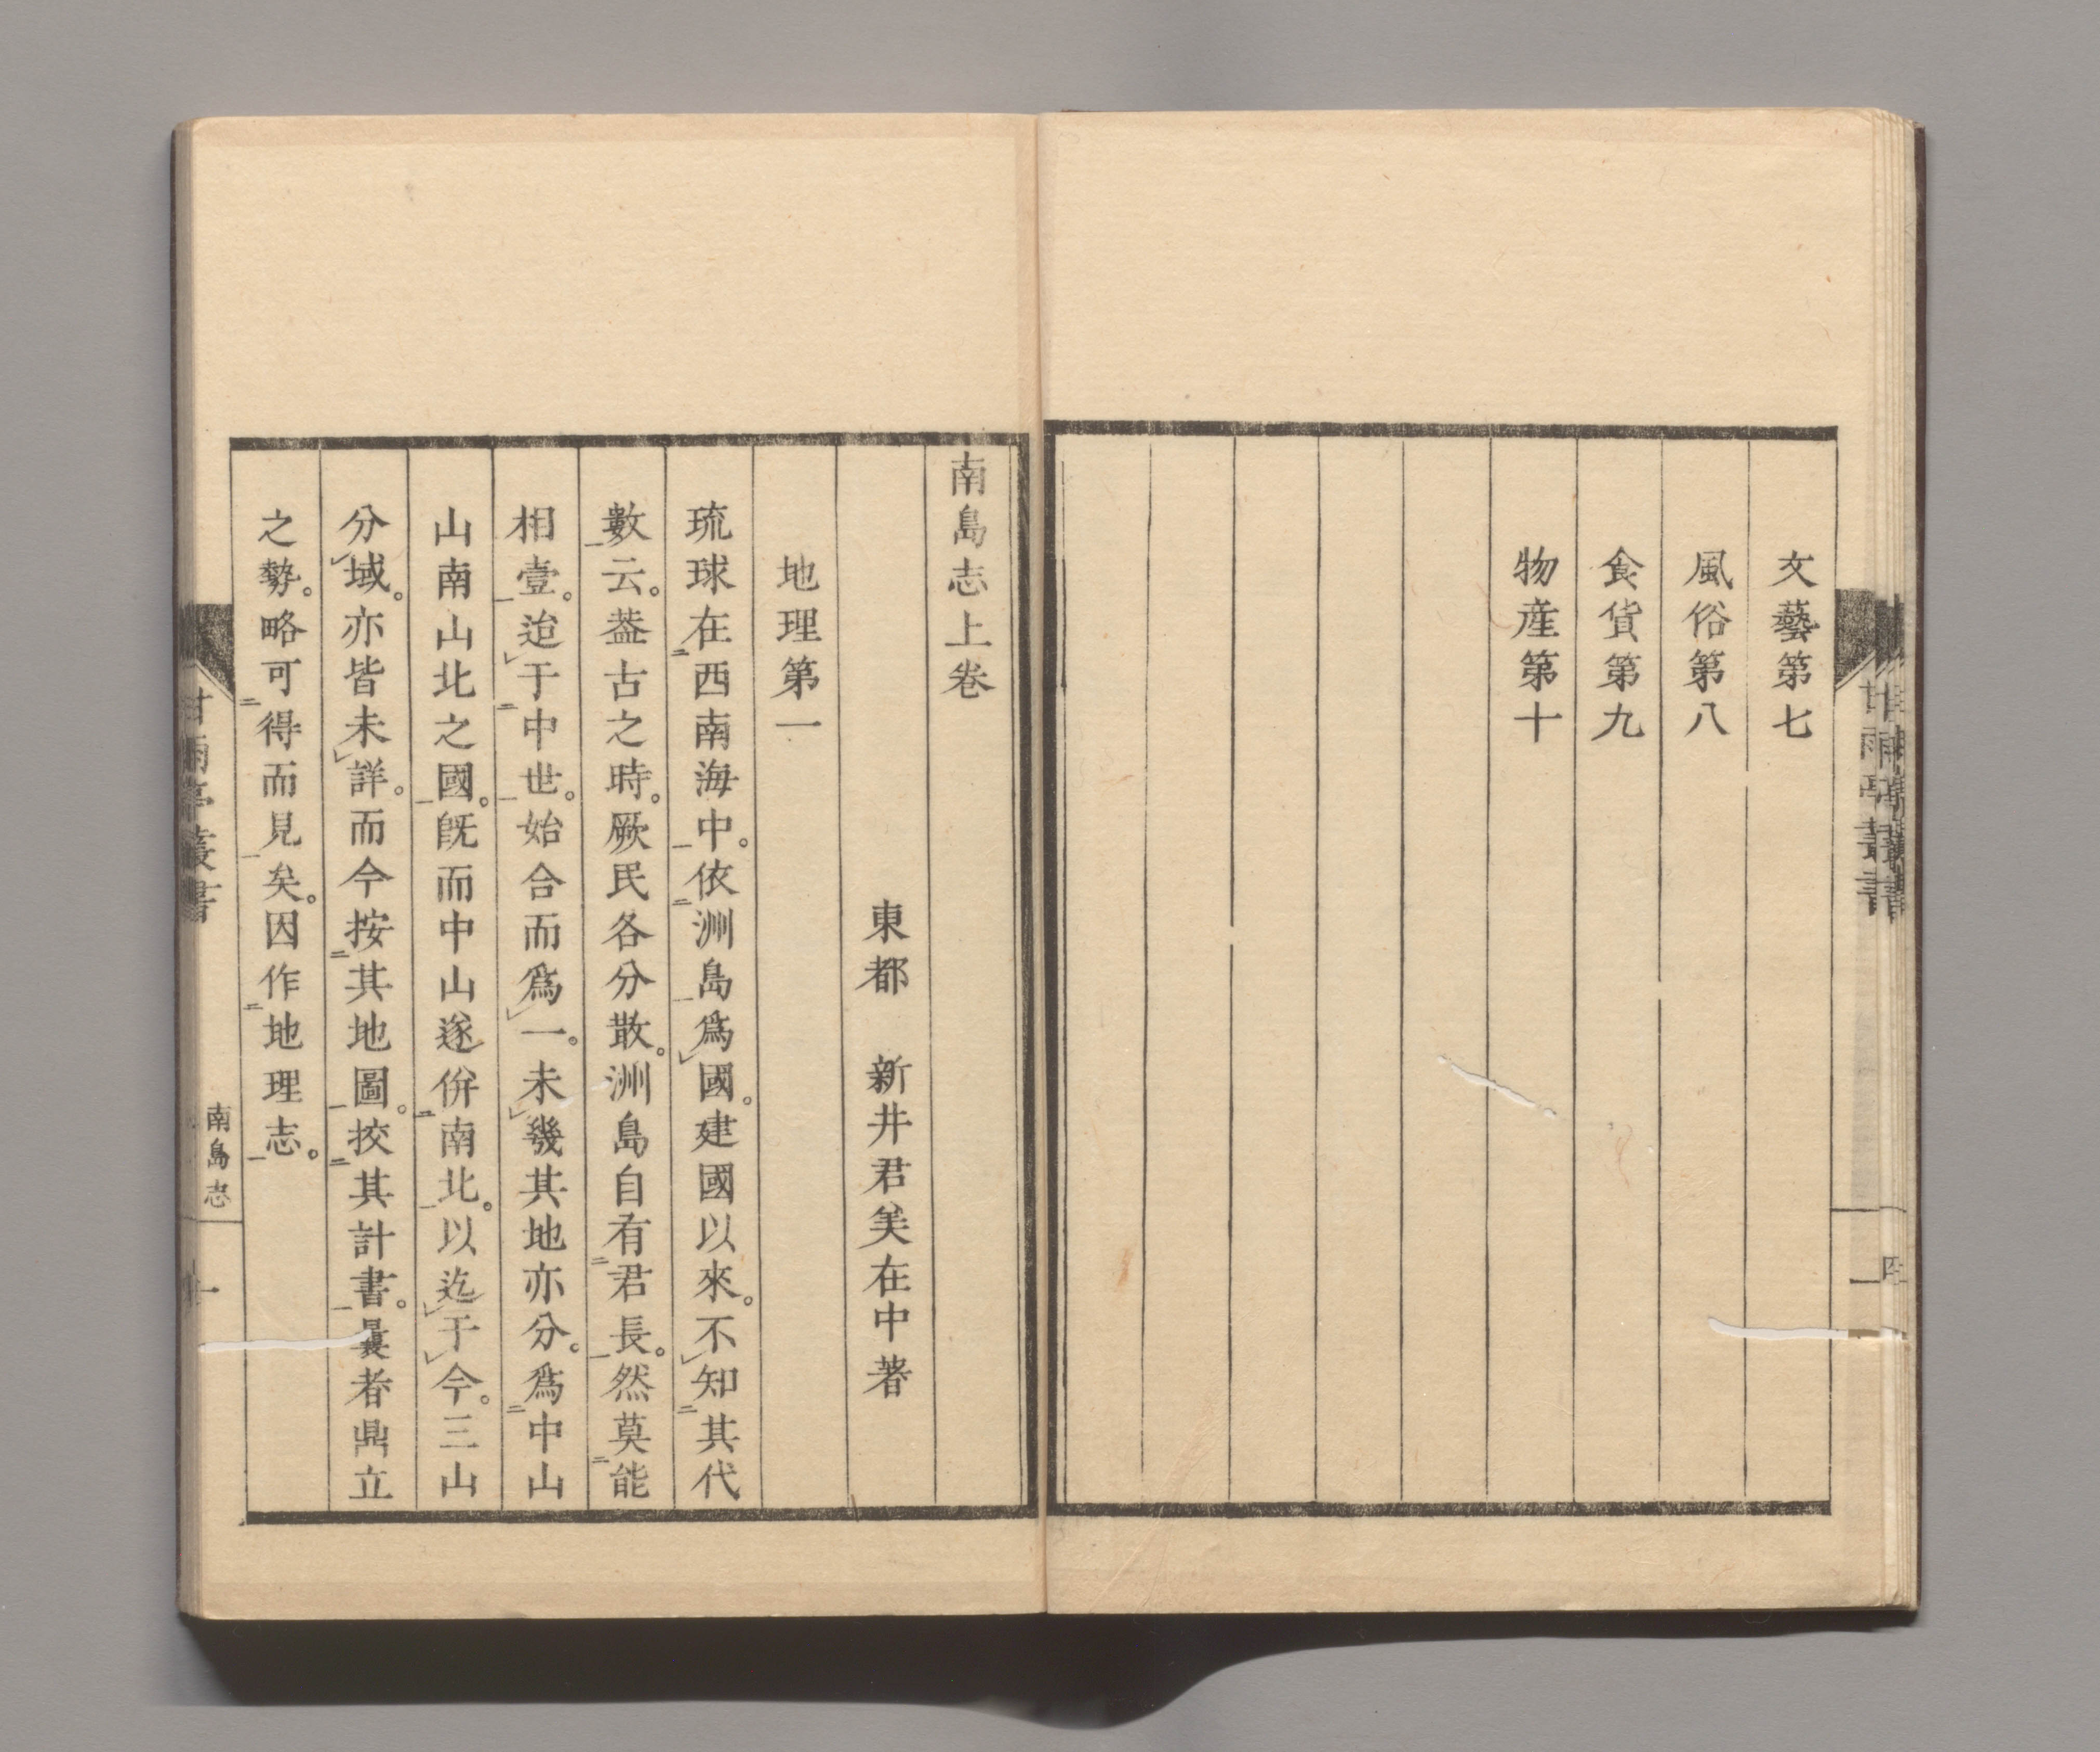 文藝第七
風俗第八
食貨第九
物産第十
南島志上卷
東都　新井君美在中著
地理第一
琉球在西南海中。依洲島爲國。建國以來。不知其代
數云。葢古之時。厥民各分散。洲島自有君長。然莫能
相壹。迨于中世。始合而爲一。未幾其地亦分。爲中山
山南山北之國。旣而中山遂併南北。以迄于今。三山
分域。亦皆未詳。而今按其地圖。挍其計書。曩者鼎立
之勢。略可得而見矣。因作地理志。
甘雨亭叢書
南島志
一